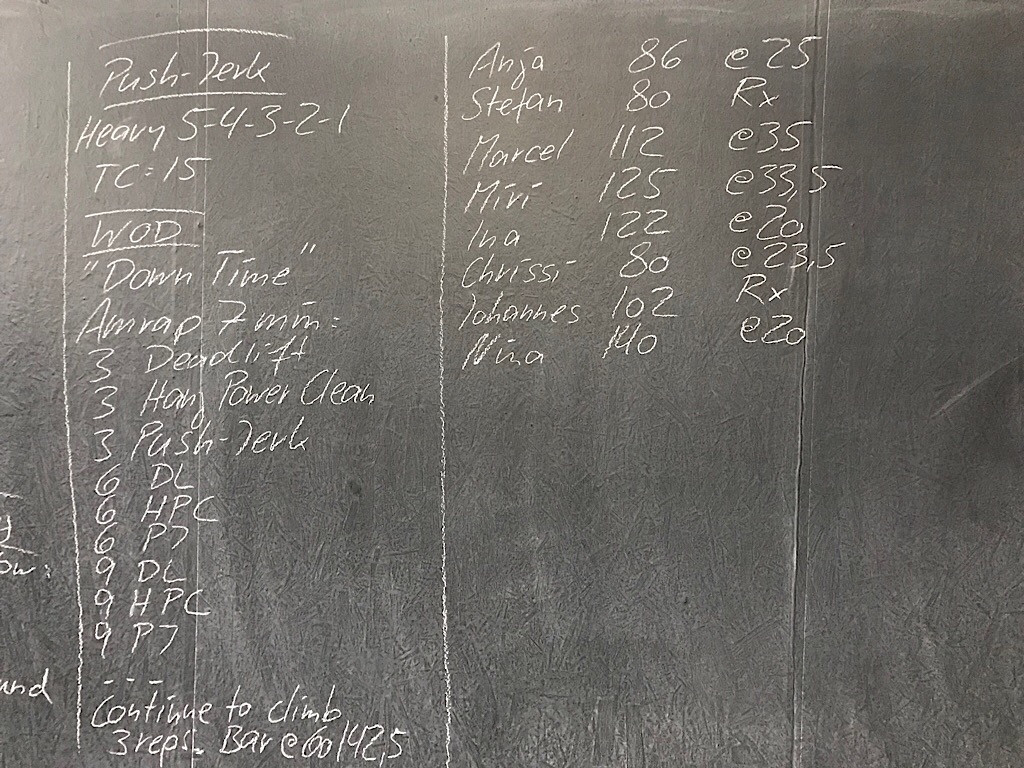 Push-Jerk
Heavy 5-4-3-2-1
TC: 15
WOD
"Down Time"
Amrap 7 min:
3 Deadlift
3 Hang Power Clean
3 Push-Jerk
6 DL
6 HPC
6 PJ
9 DL
9 HPC
9 PJ
---
Continue to climb
3 reps. Bar @60/42,5
Anja 86 @25
Stefan 80 Rx
Marcel 112 @35
Miri 125 @33,5
Ina 122 @20
Chrissi 80 @23,5
Johannes 102 Rx
Nina 140 @20